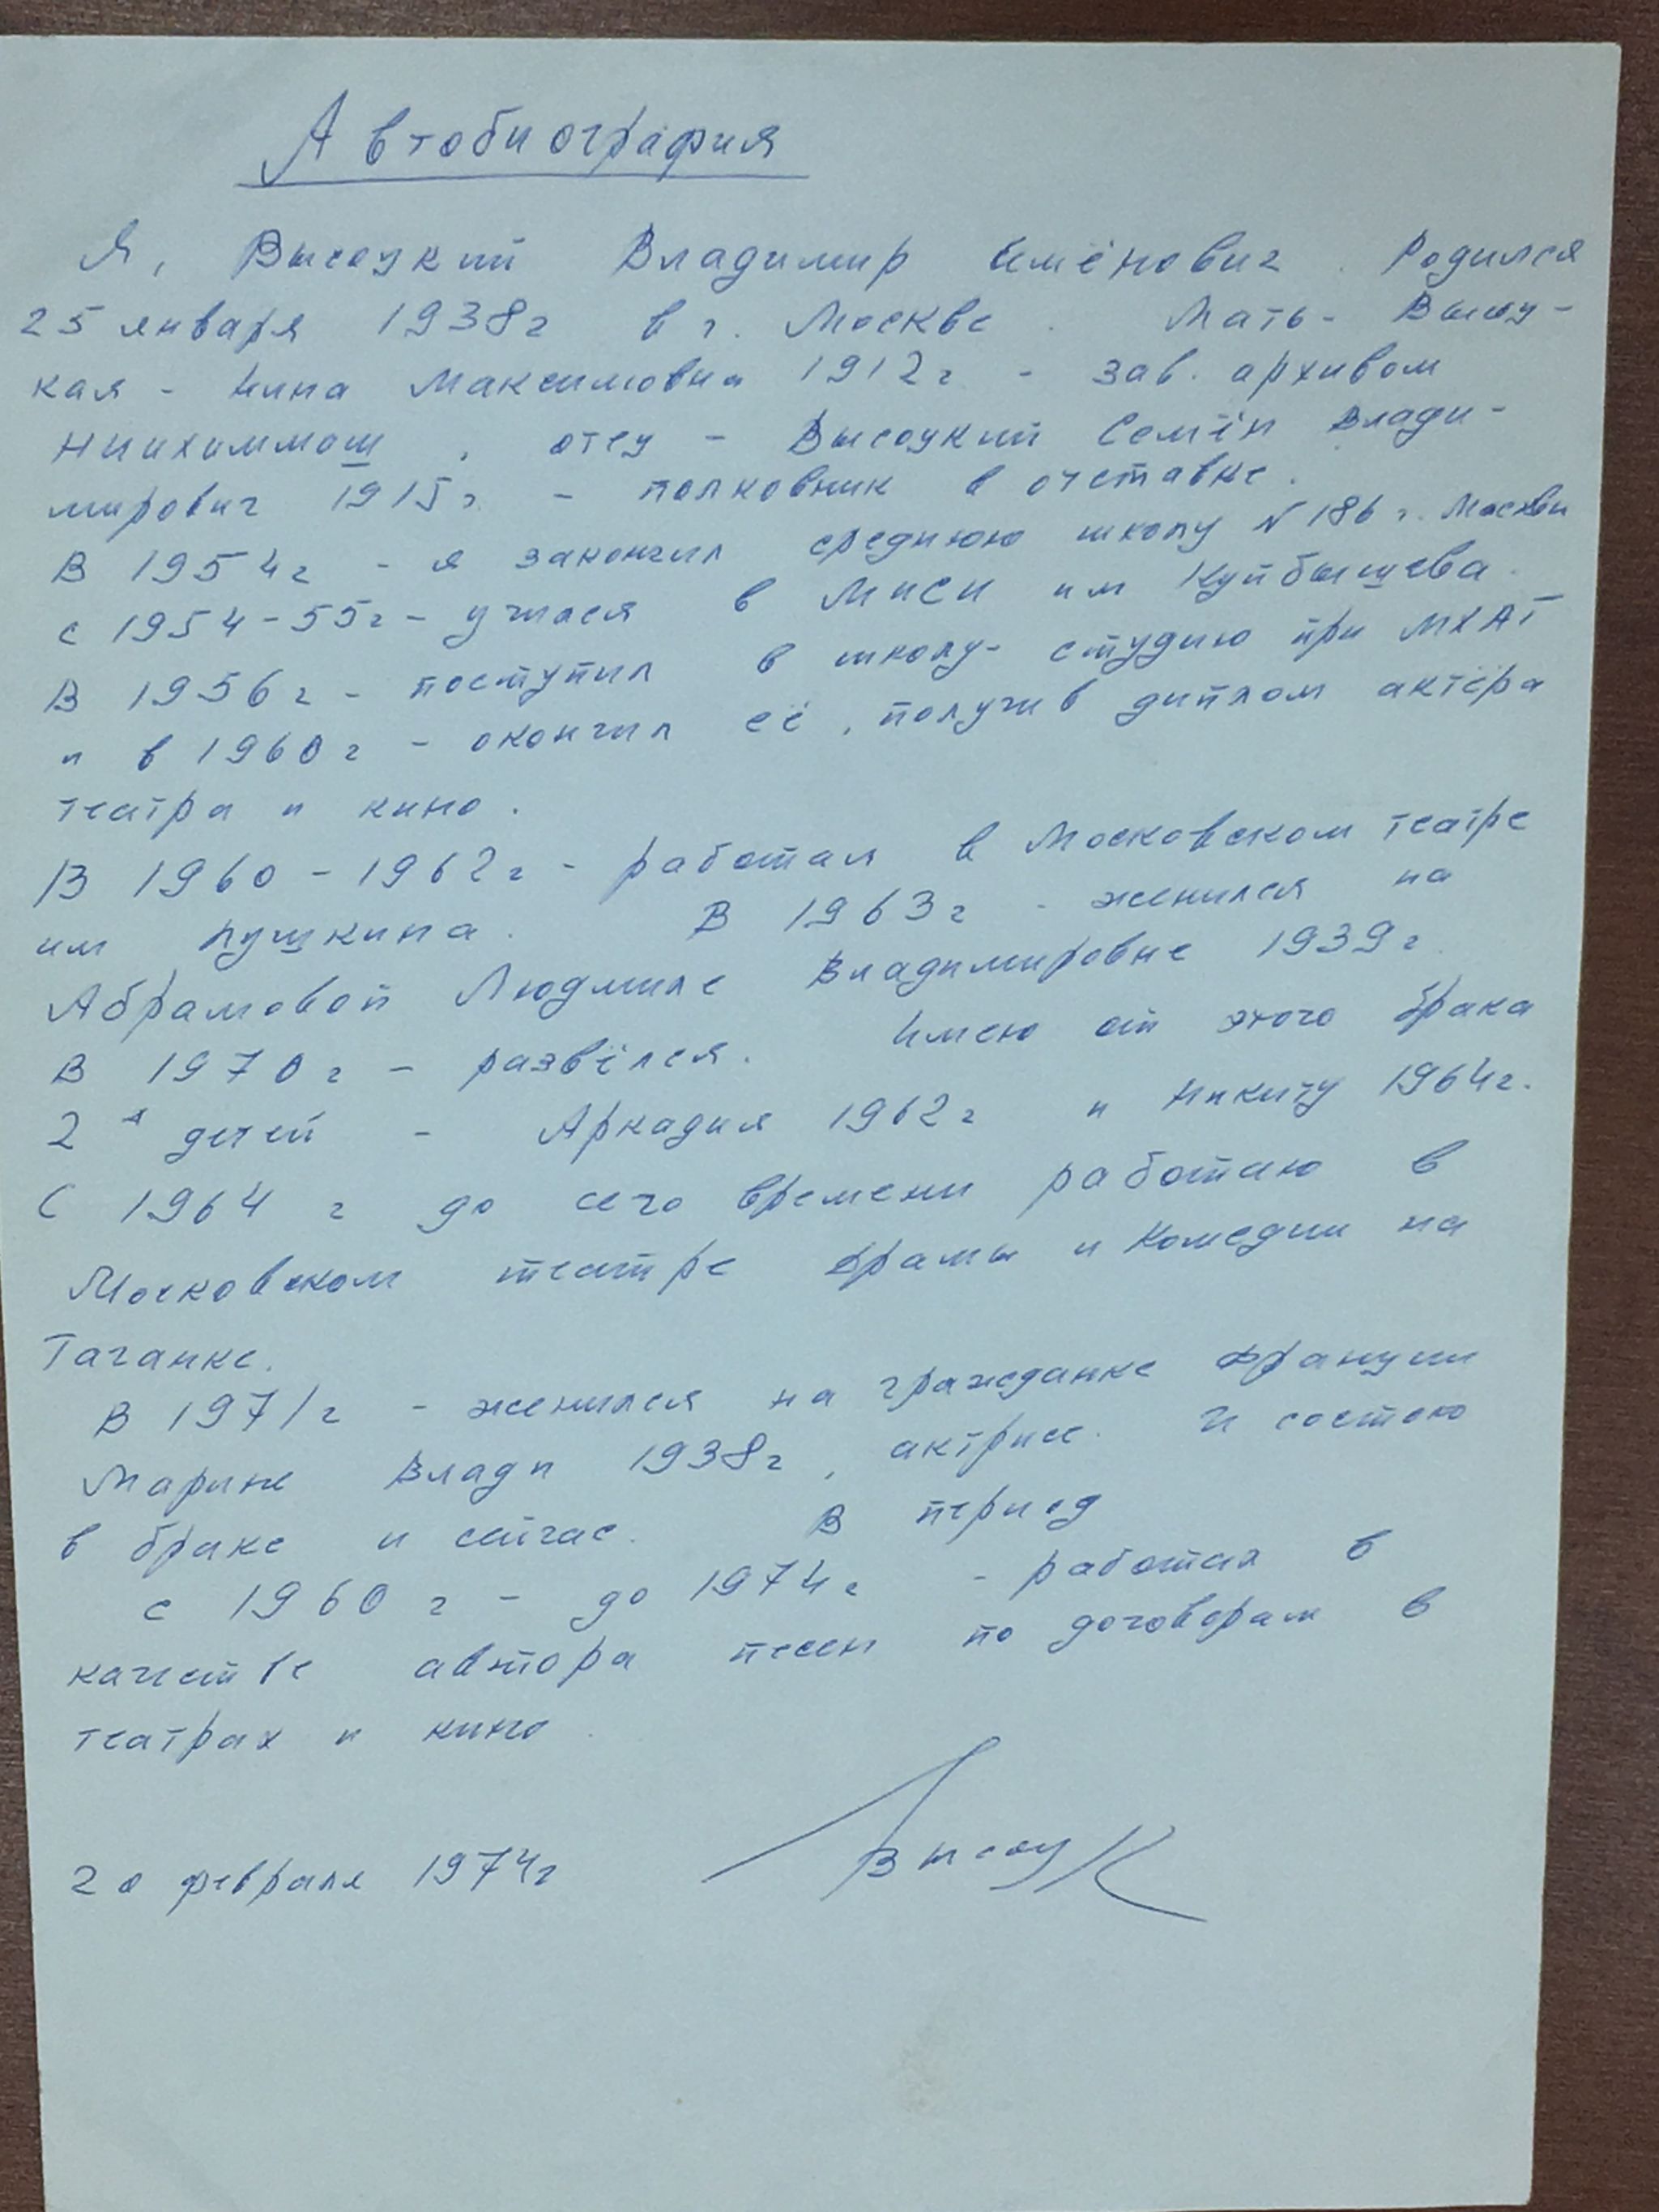 Автобиография
Я, Высоцкий Владимир Семёнович. Родился
25 января 1938г в г. Москве. Мать - Высоц-
кая - Нина Максимовна 1912г - зав. архивом
НИИхиммаш, отец - Высоцкий Семён Влади-
мирович 1915г. - полковник в отставке.
В 1954г - я закончил среднюю школу N 186 г. Москвы
с 1954-55г - учился в МИСИ им Куйбышева.
В 1956г - поступил в школу-студию при МХАТ
и в 1960г - окончил её, получив диплом актёра
театра и кино.
В 1960-1962г - работал в Московском театре
им Пушкина. В 1963г - женился на
Абрамовой Людмиле Владимировне 1939г.
В 1970г - развёлся. Имею от этого брака
2х детей - Аркадия 1962г и Никиту 1964г.
С 1964 г до сего времени работаю в
Московском театре Драмы и Комедии на
Таганке.
В 1971г - женился на гражданке Франции
Марине Влади 1938г, актрисе. И состою
в браке и сейчас. В период
с 1960 г - до 1974г - работал в
качестве автора песен по договорам в
театрах и кино.
20 февраля 1974г Высоцк